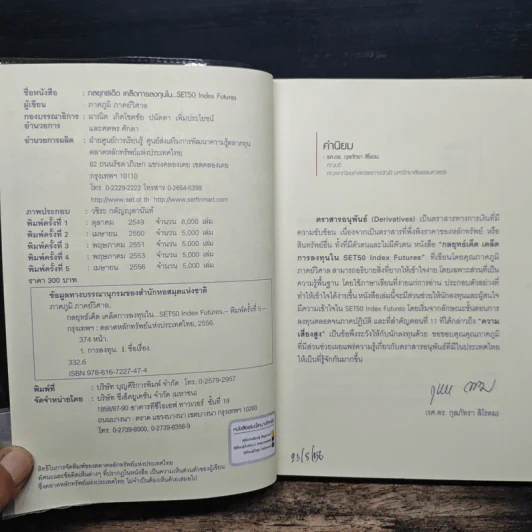 ชื่อหนังสือ : กลยุทธ์เด็ด เคล็ดการลงทุนใน...SET50 Index Futures
ผู้เขียน : ภาคภูมิ ภาคย์วิศาล
กองบรรณาธิการ : มาณิต เกิดโชคชัย ปนัดดา เพิ่มประโยชน์
อำนวยการ และศศพร ศักดา
อำนวยการผลิต : ฝ่ายศูนย์การเรียนรู้ ศูนย์ส่งเสริมการพัฒนาความรู้ตลาดทุน
ตลาดหลักทรัพย์แห่งประเทศไทย
62 ถนนรัชดาภิเษก แขวงคลองเตย เขตคลองเตย
กรุงเทพฯ 10110
โทร. 0-2229-2222 โทรสาร 0-2654-5399
http://www.set.or.th http://www.setfinmart.com
ภาพประกอบ : วชิระ
พิมพ์ครั้งที่ 1 : ตุลาคม 2549 จำนวน 8,000 เล่ม
พิมพ์ครั้งที่ 2 : เมษายน 2550 จำนวน 5,000 เล่ม
พิมพ์ครั้งที่ 3 : พฤษภาคม 2551 จำนวน 5,000 เล่ม
พิมพ์ครั้งที่ 4 : พฤษภาคม 2553 จำนวน 5,000 เล่ม
พิมพ์ครั้งที่ 5 : เมษายน 2556 จำนวน 5,000 เล่ม
ราคา 300 บาท
ข้อมูลทางบรรณานุกรมของสำนักหอสมุดแห่งชาติ
ภาคภูมิ ภาคย์วิศาล.
กลยุทธ์เด็ด เคล็ดการลงทุนใน...SET50 Index Futures.-- พิมพ์ครั้งที่ 5.--
กรุงเทพฯ : ตลาดหลักทรัพย์แห่งประเทศไทย, 2556.
374 หน้า.
1. การลงทุน. I. ชื่อเรื่อง.
332.6
ISBN 978-616-7227-47-4
พิมพ์ที่ : บริษัท บุญศิริการพิมพ์ จำกัด โทร. 0-2579-2957
จัดจำหน่ายโดย : บริษัท ซีเอ็ดยูเคชั่น จำกัด (มหาชน)
1858/87-90 อาคารทีซีไอเอฟ ทาวเวอร์ ชั้นที่ 19
ถนนบางนา-ตราด แขวงบางนา เขตบางนา กรุงเทพฯ 10260
โทร. 0-2739-8000, 0-2739-8356-9
ลิขสิทธิ์ในการจัดพิมพ์ของตลาดหลักทรัพย์แห่งประเทศไทย
ทัศนะและข้อคิดเห็นต่างๆ ที่ปรากฏในหนังสือ เป็นความเห็นส่วนตัวของผู้เขียน
ซึ่งตลาดหลักทรัพย์แห่งประเทศไทย ไม่จำเป็นต้องเห็นด้วยเสมอไป
คำนิยม
รศ.ดร. กุลภัทรา สิโรดม
คณบดี
คณะพาณิชยศาสตร์และการบัญชี มหาวิทยาลัยธรรมศาสตร์
ตราสารอนุพันธ์ (Derivatives) เป็นตราสารทางการเงินที่มี
ความซับซ้อน เนื่องจากเป็นตราสารที่พึ่งพิงราคาของหลักทรัพย์ หรือ
สินทรัพย์อื่น ทั้งที่มีตัวตนและไม่มีตัวตน หนังสือ "กลยุทธ์เด็ด เคล็ด
การลงทุนใน SET50 Index Futures" ที่เขียนโดยคุณภาคภูมิ
ภาคย์วิศาล สามารถอธิบายสิ่งที่ยากให้เข้าใจง่าย โดยเฉพาะส่วนที่เป็น
ความรู้พื้นฐาน โดยใช้ภาษาเขียนที่ง่ายแก่การอ่าน ประกอบตัวอย่างที่
ทำให้เข้าใจได้ง่ายขึ้น หนังสือเล่มนี้จะมีส่วนช่วยให้นักลงทุนและผู้สนใจ
มีความเข้าใจใน SET50 Index Futures โดยเริ่มจากลักษณะขั้นตอนการ
ลงทุนตลอดจนภาคปฏิบัติ และที่สำคัญตอนที่ 11 ที่ได้กล่าวถึง "ความ
เสี่ยงสูง" เป็นข้อพึงระวังให้กับนักลงทุนด้วย ขอขอบคุณคุณภาคภูมิ
ที่มีส่วนช่วยเผยแพร่ความรู้เกี่ยวกับตราสารอนุพันธ์ที่มีในประเทศไทย
ให้เป็นที่รู้จักกันมากขึ้น
รศ.ดร. กุลภัทรา สิโรดม